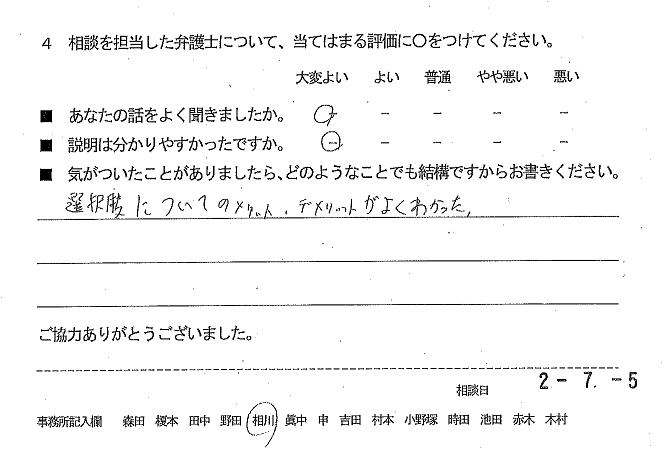 4 相談を担当した弁護士について、当てはまる評価に〇をつけてください。
大変よい よい 普通 やや悪い 悪い
■ あなたの話をよく聞きましたか。 － － － － －
■ 説明は分かりやすかったですか。 － － － － －
■ 気がついたことがありましたら、どのようなことでも結構ですからお書きください。
選択肢についてのメリット、デメリットがよくわかった。
ご協力ありがとうございました。
相談日 2－7.－5
事務所記入欄 森田 榎本 田中 野田 相川 眞中 申 吉田 村本 小野塚 時田 池田 赤木 木村